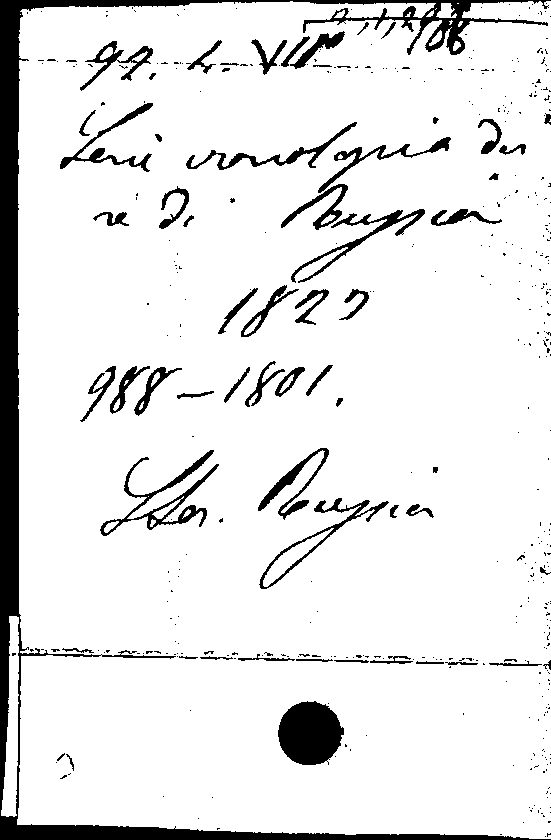 92. L. VIII 108
Serie cronologica dei
re di Russia
1827
988-1801.
Stor. Russia